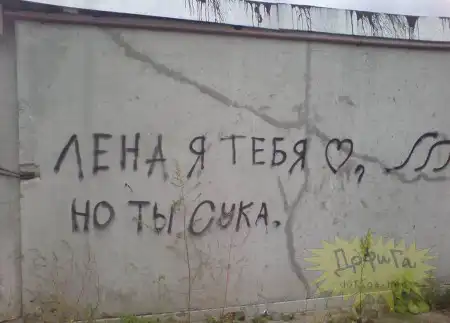 ЛЕНА Я ТЕБЯ ♡,
НО ТЫ СУКА.
ДофиГа